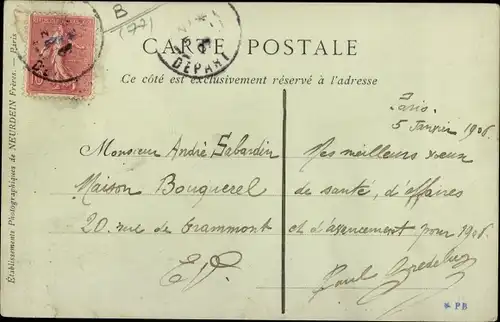 B
(77)
CARTE POSTALE
DÉPART
Ce côté est exclusivement réservé à l'adresse
Paris.
5 Janvier 1906
Monsieur André Sabardin
Maison Bouquerel
20. rue de Grammont
E. V.
Mes meilleurs vœux
de santé, d'affaires
et d'avancement pour 1906.
Paul
Établissements Photographiques de NEURDEIN Frères. — Paris
* PB